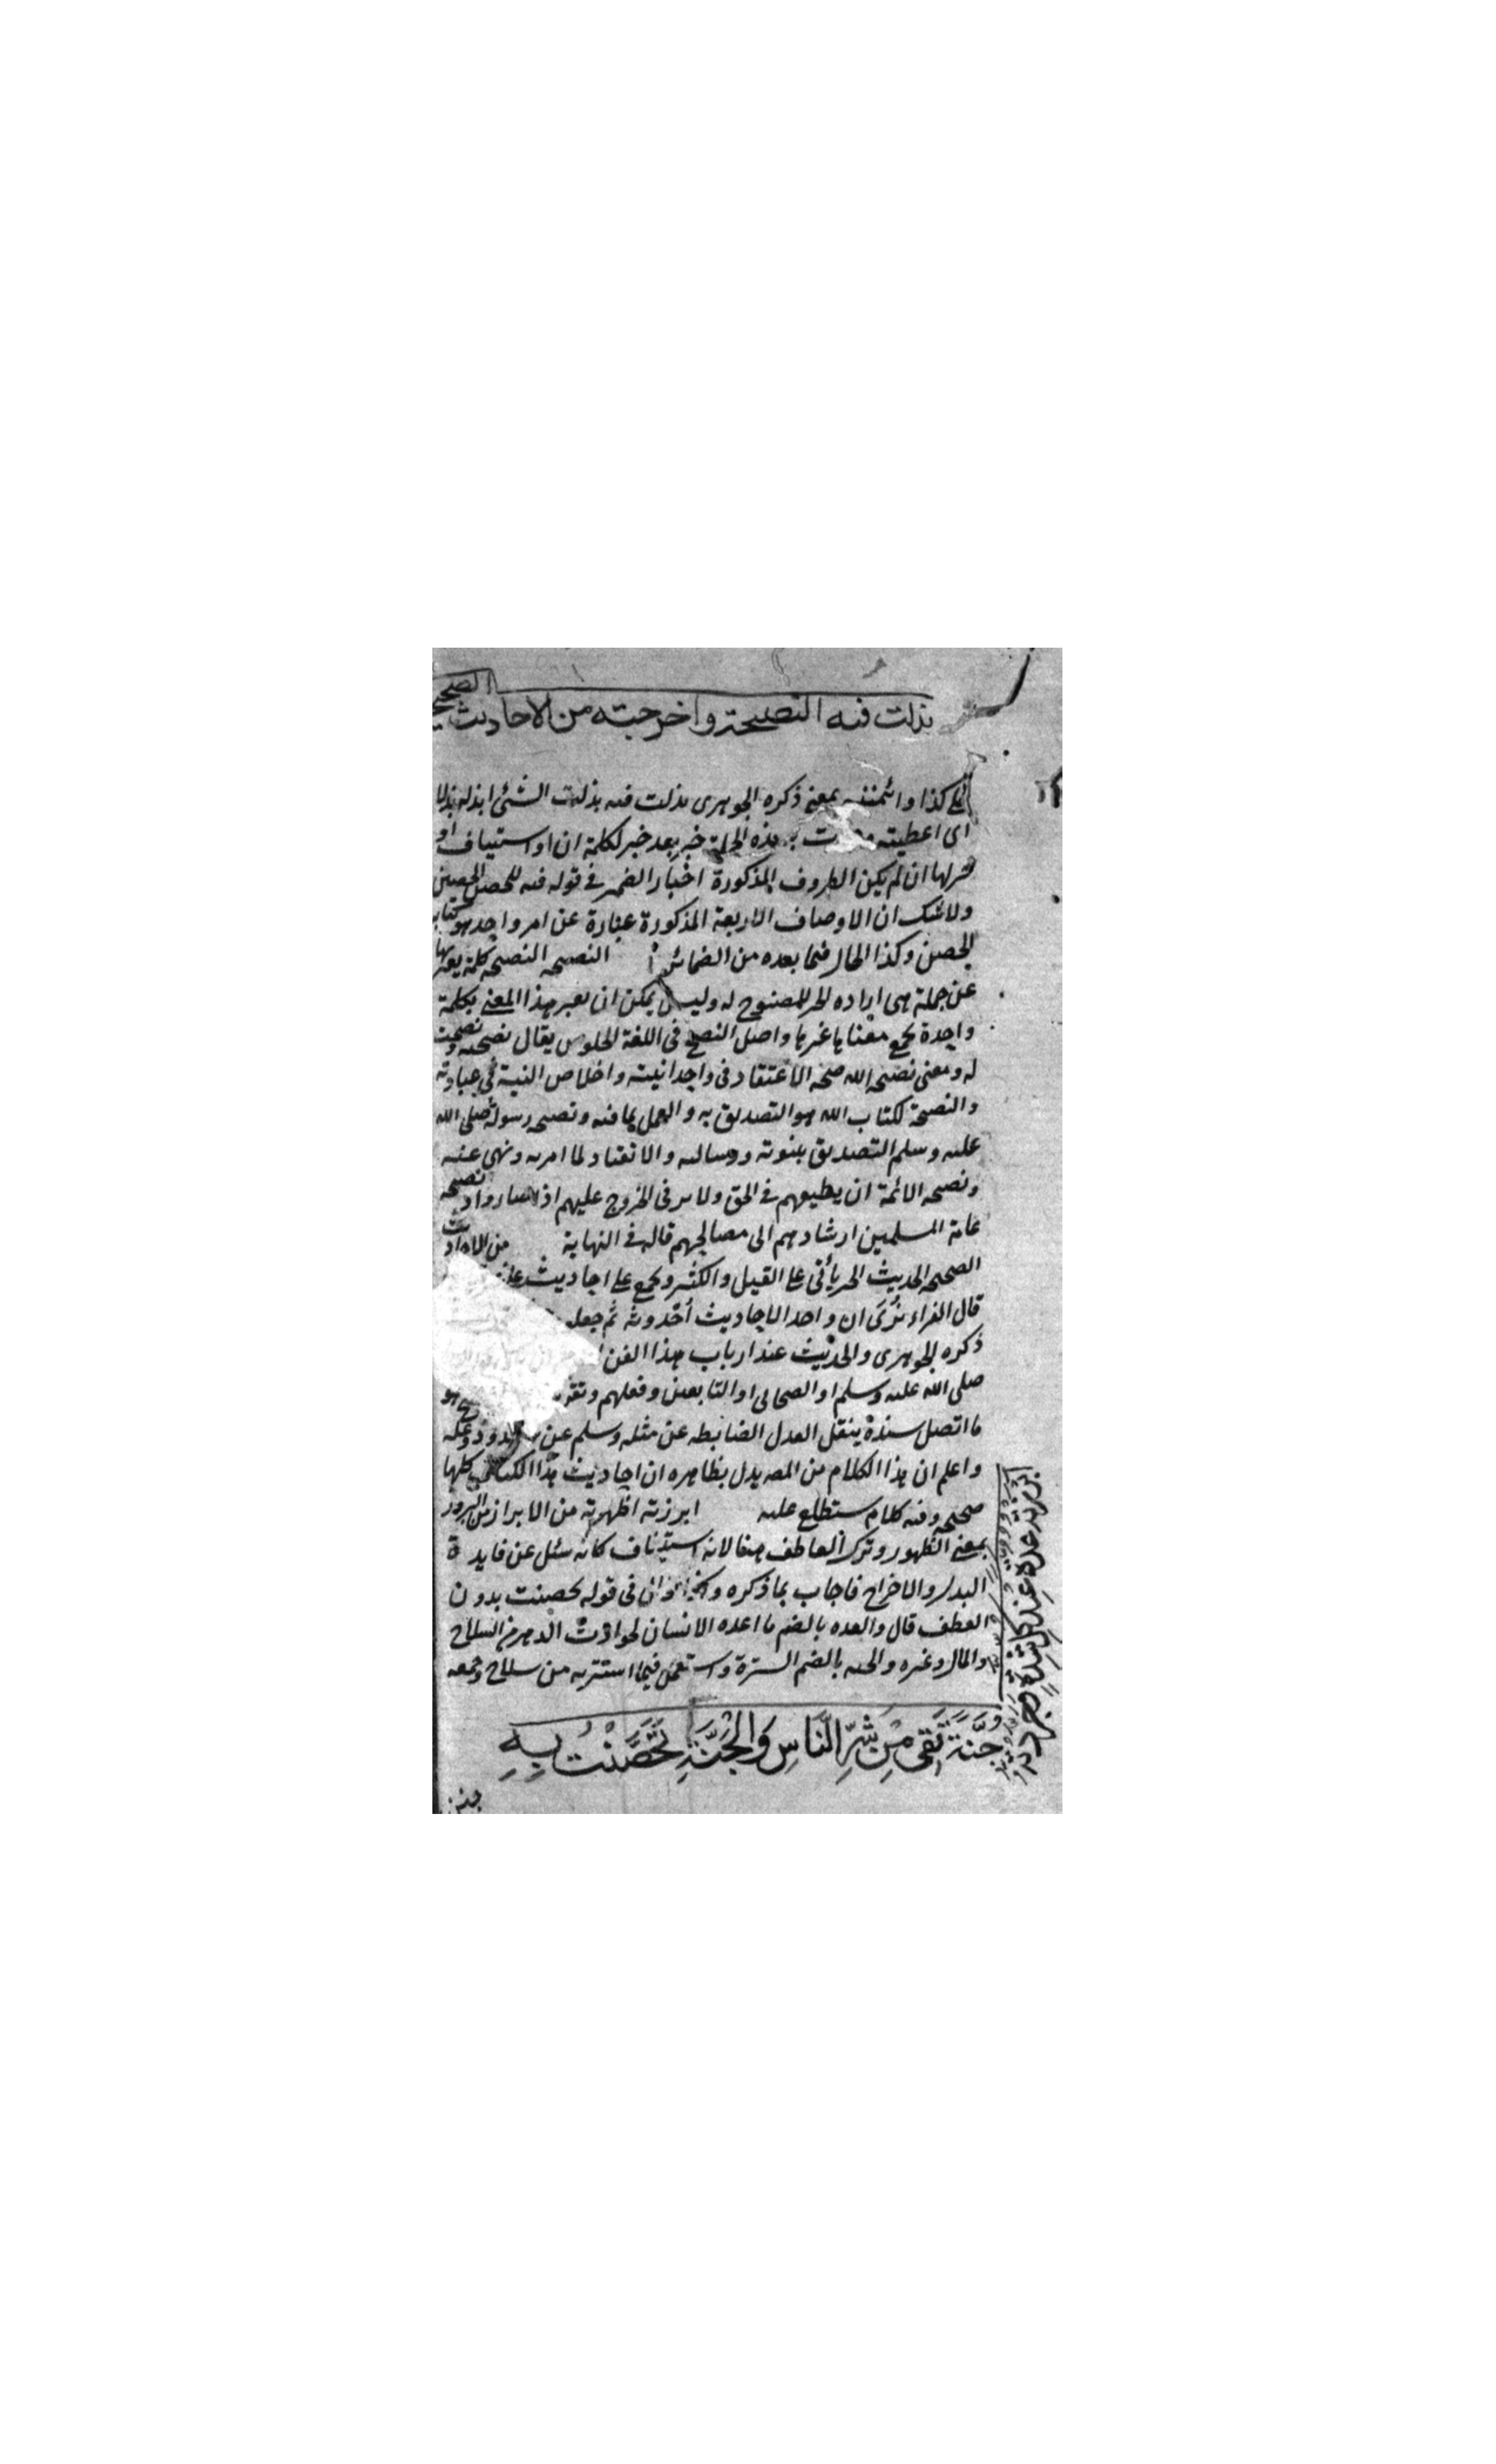 بذلت فيه النصيحة واخرجته من الاحاديث الصحيحة
على كذا وائتمنته بمعنى ذكره الجوهرى بذلت فيه بذلت الشئ ابذله بذلا
اى اعطيته به هذه الجملة خبر بعد خبر لكلمة ان او استيناف او
خبر لها ان لم يكن الظروف المذكورة اخبار الضمير فى قوله فيه للحصن الحصين
ولا شك ان الاوصاف الاربعة المذكورة عبارة عن امر واحد هو كتاب
الحصن وكذا الحال فيما بعده من الضمائر النصيحة النصيحة كلمة يعبر بها
عن جملة هى ارادة الخير للمنصوح له وليس يمكن ان يعبر هذا المعنى بكلمة
واحدة يجمع معناها غيرها واصل النصح فى اللغة الخلوص يقال نصحته ونصحت
له ومعنى نصيحة الله صحة الاعتقاد فى واحدانيته واخلاص النية فى عبادته
والنصيحة لكتاب الله هو التصديق به والعمل بما فيه ونصيحة رسوله صلى الله
عليه وسلم التصديق بنبوته ورسالته والانقياد لما امر به ونهى عنه
ونصيحة الائمة ان يطيعهم فى الحق ولا يرى الخروج عليهم اذا جاروا ونصيحة
عامة المسلمين ارشادهم الى مصالحهم قاله فى النهاية من الاحاديث
الصحيحة الحديث الخبر يأتى على القليل والكثير ويجمع على احاديث على
قال الفراء نُرَى ان واحد الاحاديث أحدوثة ثم جعل
ذكره الجوهرى والحديث عند ارباب هذا الفن
صلى الله عليه وسلم او الصحابى او التابعين وفعلهم وتقرير
ما اتصل سنده بنقل العدل الضابط عن مثله وسلم عن شذوذ وعلة
واعلم ان هذا الكلام من المص يدل بظاهره ان احاديث هذا الكتاب كلها
صحيحة وفيه كلام ستطلع عليه ابرزته اظهرته من الابراز من البروز
بمعنى الظهور وترك العاطف هنا لانه استيناف كانه سئل عن فايدة
البذل والاخراج فاجاب بما ذكره وكذا فى قوله تحصنت بدون
العطف قال والعدة بالضم ما اعده الانسان لحوادث الدهر من السلاح
والمال وغيره والجنة بالضم السترة واستعمل فيما استتر به من سلاح وجمعه
ابرزته عدة عند كل شدة وجردته
جُنَّةً تَقِى مِنْ شَرِّ النَّاسِ وَالْجِنَّةِ تَحَصَّنْتُ بِهِ